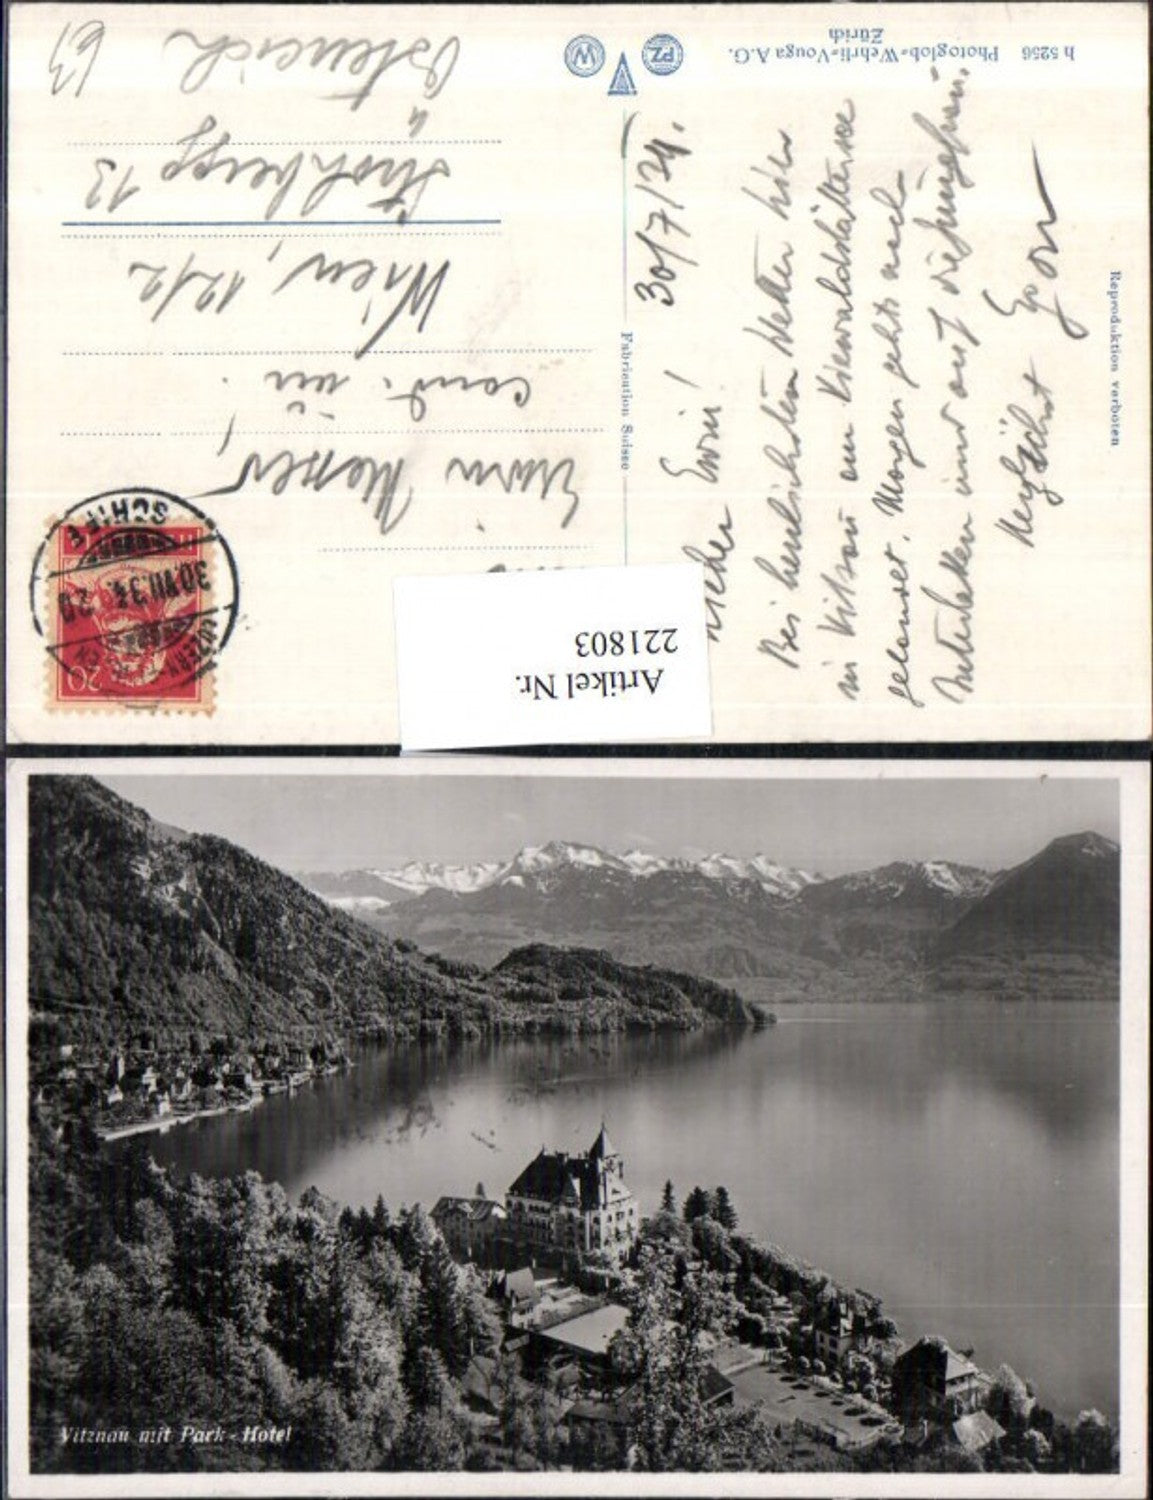 h 5256 Photoglob-Wehrli-Vouga A.G.
Zürich
PZ W
Reproduktion verboten
Fabrication Suisse
30/7/34.
Lieber Erwin!
Bei herrlichstem Wetter hier
in Vitznau am Vierwaldstättersee
gelandet. Morgen gehts nach
Interlaken und auf die Jungfrau.
Herzlichst Egon
Erwin
cand. ing.
Wien, 12/2
13
Österreich
63
LUZERN
30.VII.34. 20
SCHIFF
20
Artikel Nr.
221803
Vitznau mit Park-Hotel